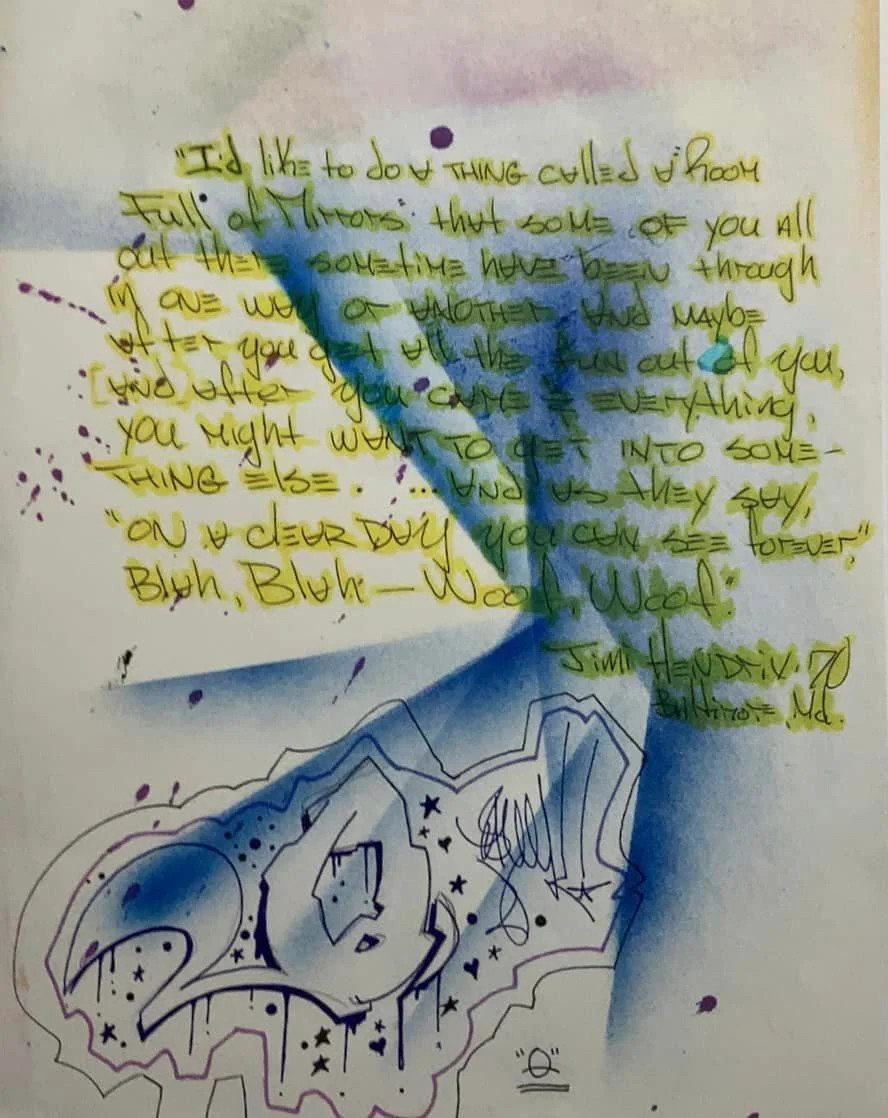 "I'd like to do a THING called a "Room
Full of Mirrors" that SOME OF you All
out there SOMEtiME have been through
in ONE way or ANOTHER AND MAYBE
after you get all the fun out of you,
[AND after you CAME & EVERYthing,
you Might WANT TO GET INTO SOME-
THING ElSE. ... AND as they say,
"ON a clEAR DAY you CAN SEE forEVER,"
Blah, Blah — Woof, Woof."
Jimi HENDRiX. 70
BAltiMorE, Md.
"Q"